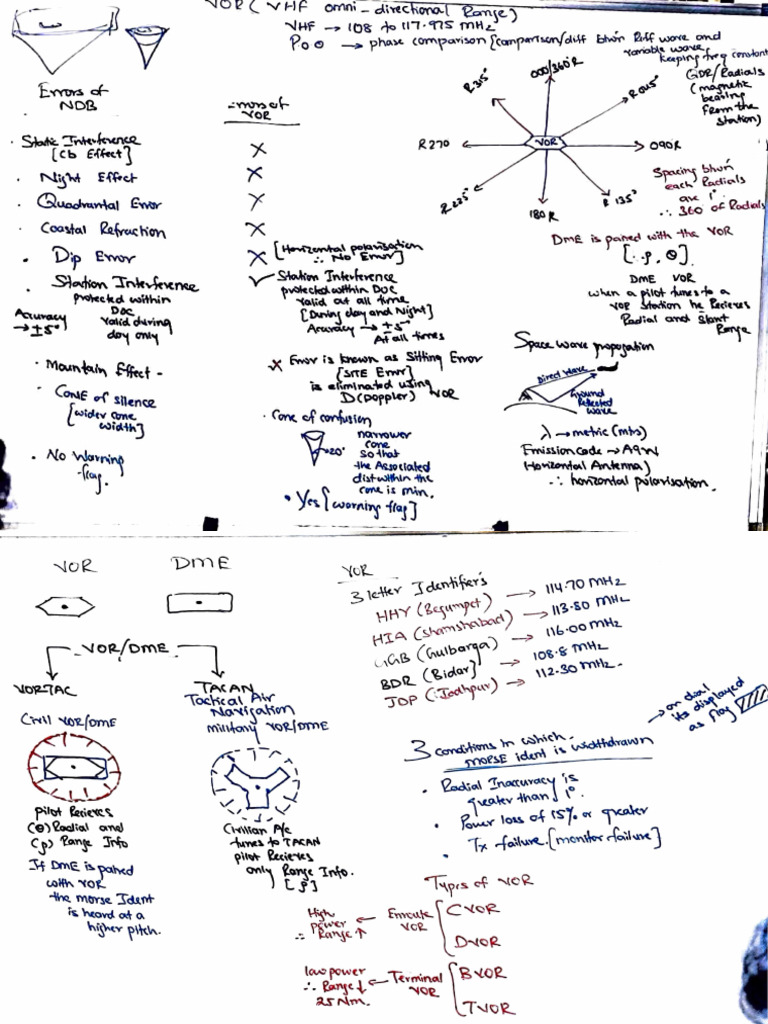 VOR ( VHF omni - directional Range)
VHF → 108 to 117.975 MHz
POO → phase comparison [comparison/diff btwn Reff wave and
variable wave,
keeping freq constant
Errors of
NDB
· Static Interference
[Cb Effect]
· Night Effect
· Quadrantal Error
· Coastal Refraction
· Dip Error
· Station Interference
protected within
DOC
valid during
day only
Accuracy
→ ±5°
· Mountain Effect -
· CONE of silence
[wider cone
width]
· No Warning
flag.
Errors of
VOR
X
X
X
X
X [Horizontal polarisation
∴ No Error]
✓ Station Interference
protected within DOC
valid at all time
[During day and Night]
Accuracy → ±5°
At all times
X Error is known as Sitting Error
[SITE Error]
is eliminated using
D(Doppler) VOR
· Cone of confusion
20°
narrower
cone
so that
the Associated
dist within the
cone is min.
· Yes [warning flag]
000/360°R
R 315°
R 045°
R 270
VOR
090R
R 225°
180 R
R 135°
QDR/Radials
(magnetic
bearing
from the
station)
Spacing btwn
each Radials
are 1°
∴ 360 of Radials
DME is paired with the VOR
[∴ ρ, θ]
DME VOR
when a pilot tunes to a
VOR Station he Recieves
Radial and Slant
Range
Space wave propogation
Direct wave
Ground
Reflected
wave
λ → metric (mts)
Emission code → A9W
Horizontal Antenna)
∴ horizontal polarisation.
VOR
DME
VOR/DME
VORTAC
Civil VOR/DME
pilot Recieves
(θ) Radial and
(ρ) Range Info
If DME is paired
with VOR
the morse Ident
is heard at a
higher pitch.
TACAN
Tactical Air
Navigation
military VOR/DME
Civilian A/c
tunes to TACAN
pilot Recieves
only Range Info.
[ρ]
VOR
3 letter Identifier's
HHY (Begumpet) → 114.70 MHz
HIA (Shamshabad) → 113.80 MHz
GGB (Gulbarga) → 116.00 MHz
BDR (Bidar) → 108.8 MHz
JOP (Jodhpur) → 112.30 MHz.
→ on dial
its displayed
as flag
3 conditions in which
MORSE ident is widthdrawn
· Radial Inaccuracy is
greater than 1°.
· Power loss of 15% or greater
· Tx failure. [monitor failure]
Types of VOR
High
power
∴ Range ↑
← Enroute
VOR
CVOR
DVOR
low power
∴ Range ↓
25 Nm.
← Terminal
VOR
BVOR
TVOR